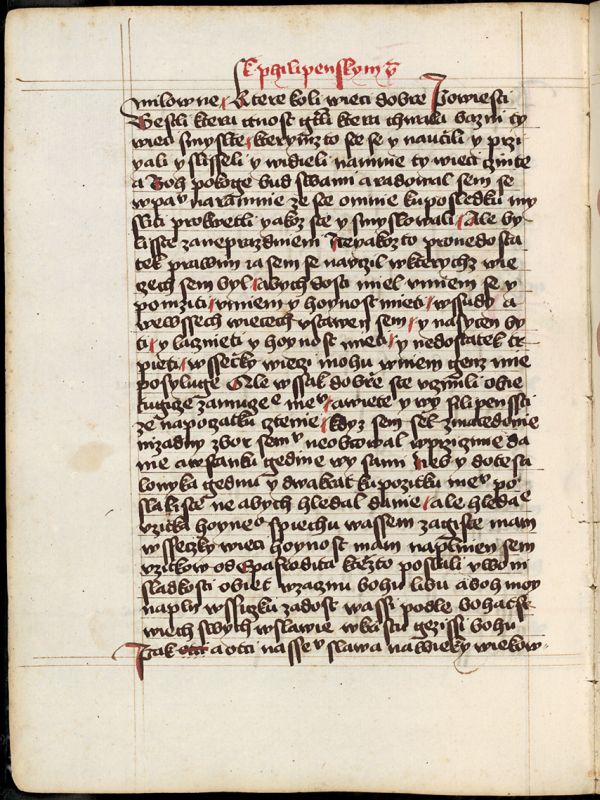 K philipenskym
milowne Ktere koli wieci dobre Powiesti
Gestli ktera ctnost gtli ktera chwala kazni ty
wieci smyslte kterymzto ste se y naucili y przi
yali y slisseli y widieli namnie ty wieci czinte
a Boh pokoge bud swami a radowal sem se
w panu naramnie ze ste omnie kuposledku my
sliti prokwetli yakoz ste y smyslowali Ale by
li sste zaneprazdnieni Ne yakozto pronedosta
tek prawim ia sem se nauczil w kterychz wie
czech sem byl abych dosti miel vmiem se y
ponizziti vmiem y hoynost mieti wssudy a
wewssech wiecech vstawen sem y nasycen by
ti y laczniети y hoynost mieti y nedostatek tr
pieti wssecky wieczi mohu w niem genz mie
posyluge Ale wssak dobrze ste vczinili obie
tugicze zamuczenie me awiete y wy filipenssti
ze napoczatku cztenie kdyz sem ssel zmacedonie
nizadny zbor semu neobcowal wprzigmie da
nie awstanku gedine wy sami Neb y dotesa
lonika gednu y dwakrat kupozitku memu po
slali ste ne abych hledal danie ale hledam
vzitka hoyneho spiechu wassem zagiste mam
wsseczky wieci hoynost mam naplnien sem
vzitkow od Epafrodita kterzto poslali v woni
sladkosti obiet wzacznu bohu libu a boh moy
napln wssiczku zadost wassi podle bohatst
wiech swych w slawie w kristu gezissi bohu
Pak a otci nassemu slawa nawieky wiekow